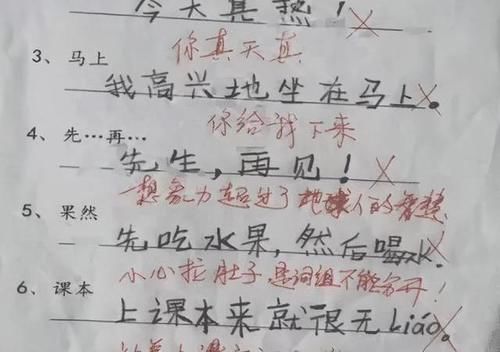 今天真热！
你真天真
3、马上
我高兴地坐在马上。
你给我下来
4、先…再…
先生，再见！
想象力超过了地球人的智慧
5、果然
先吃水果，然后喝水.
小心拉肚子 是词组不能分开！
6、课本
上课本来就很无liáo。